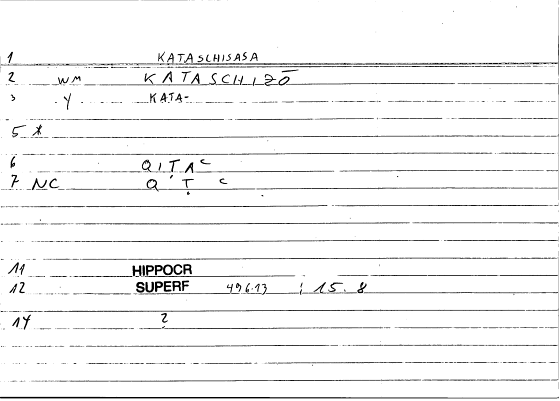 1 KATASCHISASA
2 WM KATASCHIZŌ
3 Y KATA-
5 *
6 QIṬAᶜ
7 NC Q Ṭ ᶜ
11 HIPPOCR
12 SUPERF 496.13 ; 15.8
14 2